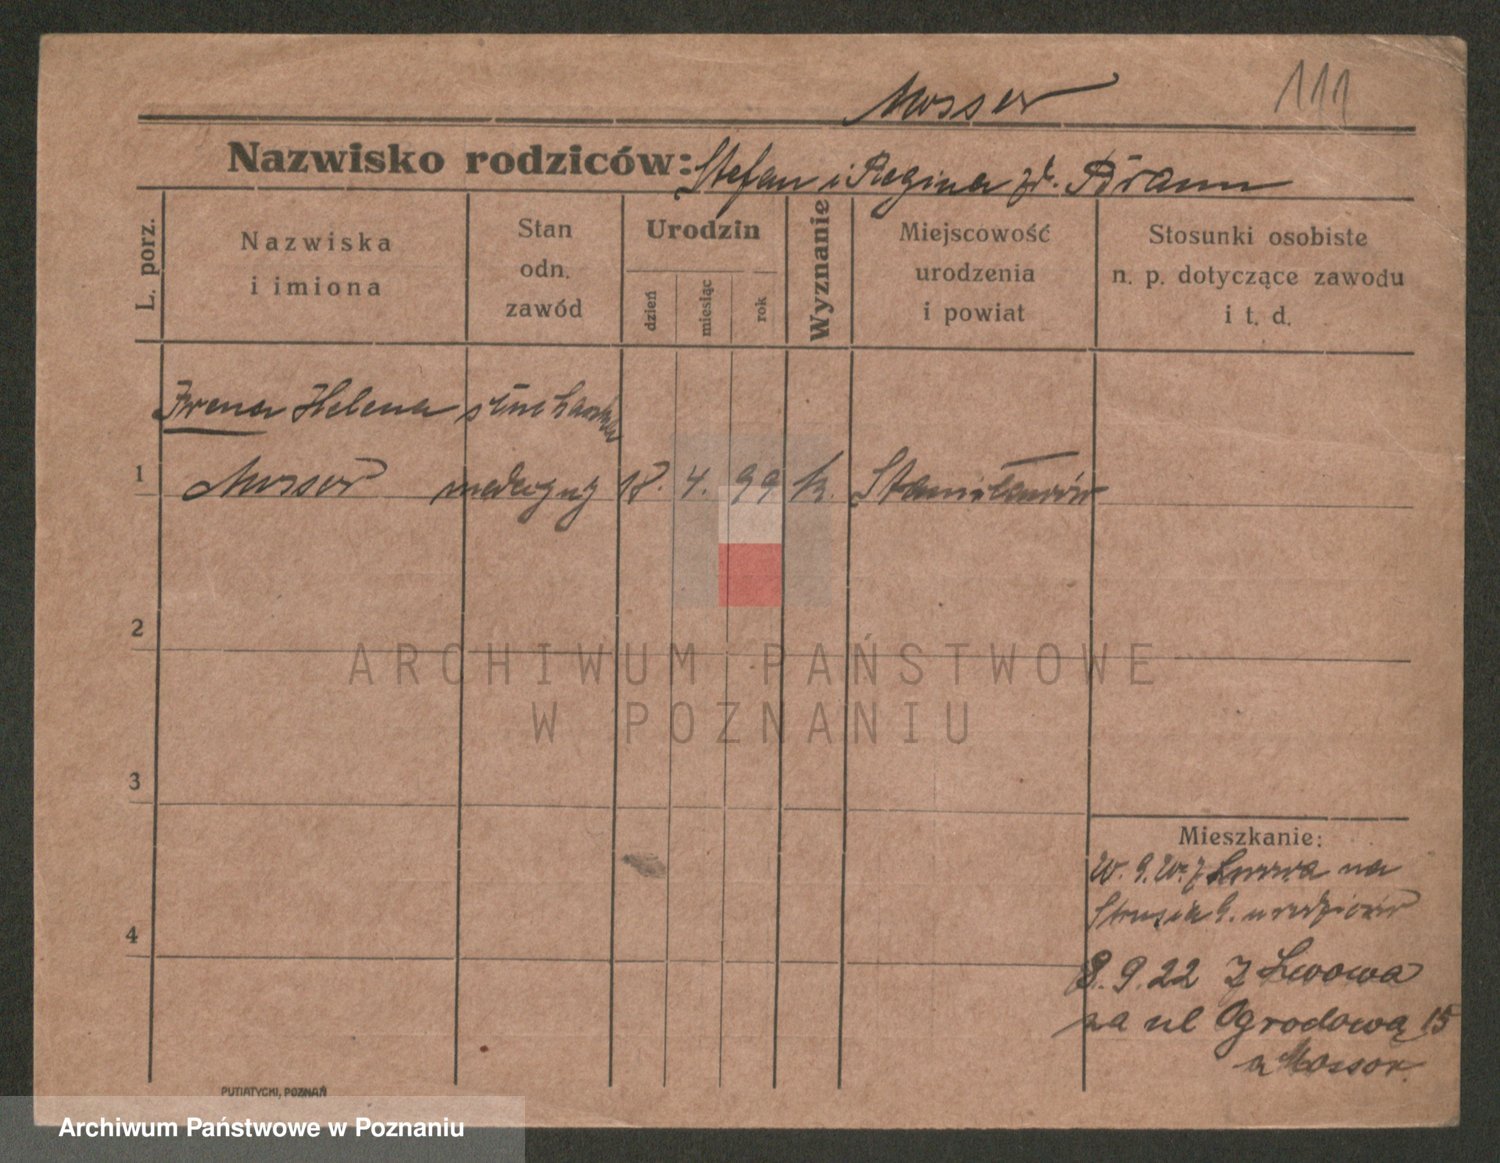 111
Mosser
Nazwisko rodziców: Stefan i Regina zd. Braun
L. porz.
Nazwiska
i imiona
Stan
odn.
zawód
Urodzin
dzień
miesiąc
rok
Wyznanie
Miejscowość
urodzenia
i powiat
Stosunki osobiste
n. p. dotyczące zawodu
i t. d.
Irena Helena słuchaczka
1 Mosser medycyny 18. 4. 99 k. Stanisławów
2
3
4
Mieszkanie:
z Lwowa na
Strusia 9.
8.9.22 z Lwowa
na ul Ogrodową 15
u Mosser.
PUTIATYCKI, POZNAŃ
ARCHIWUM PAŃSTWOWE
W POZNANIU
Archiwum Państwowe w Poznaniu